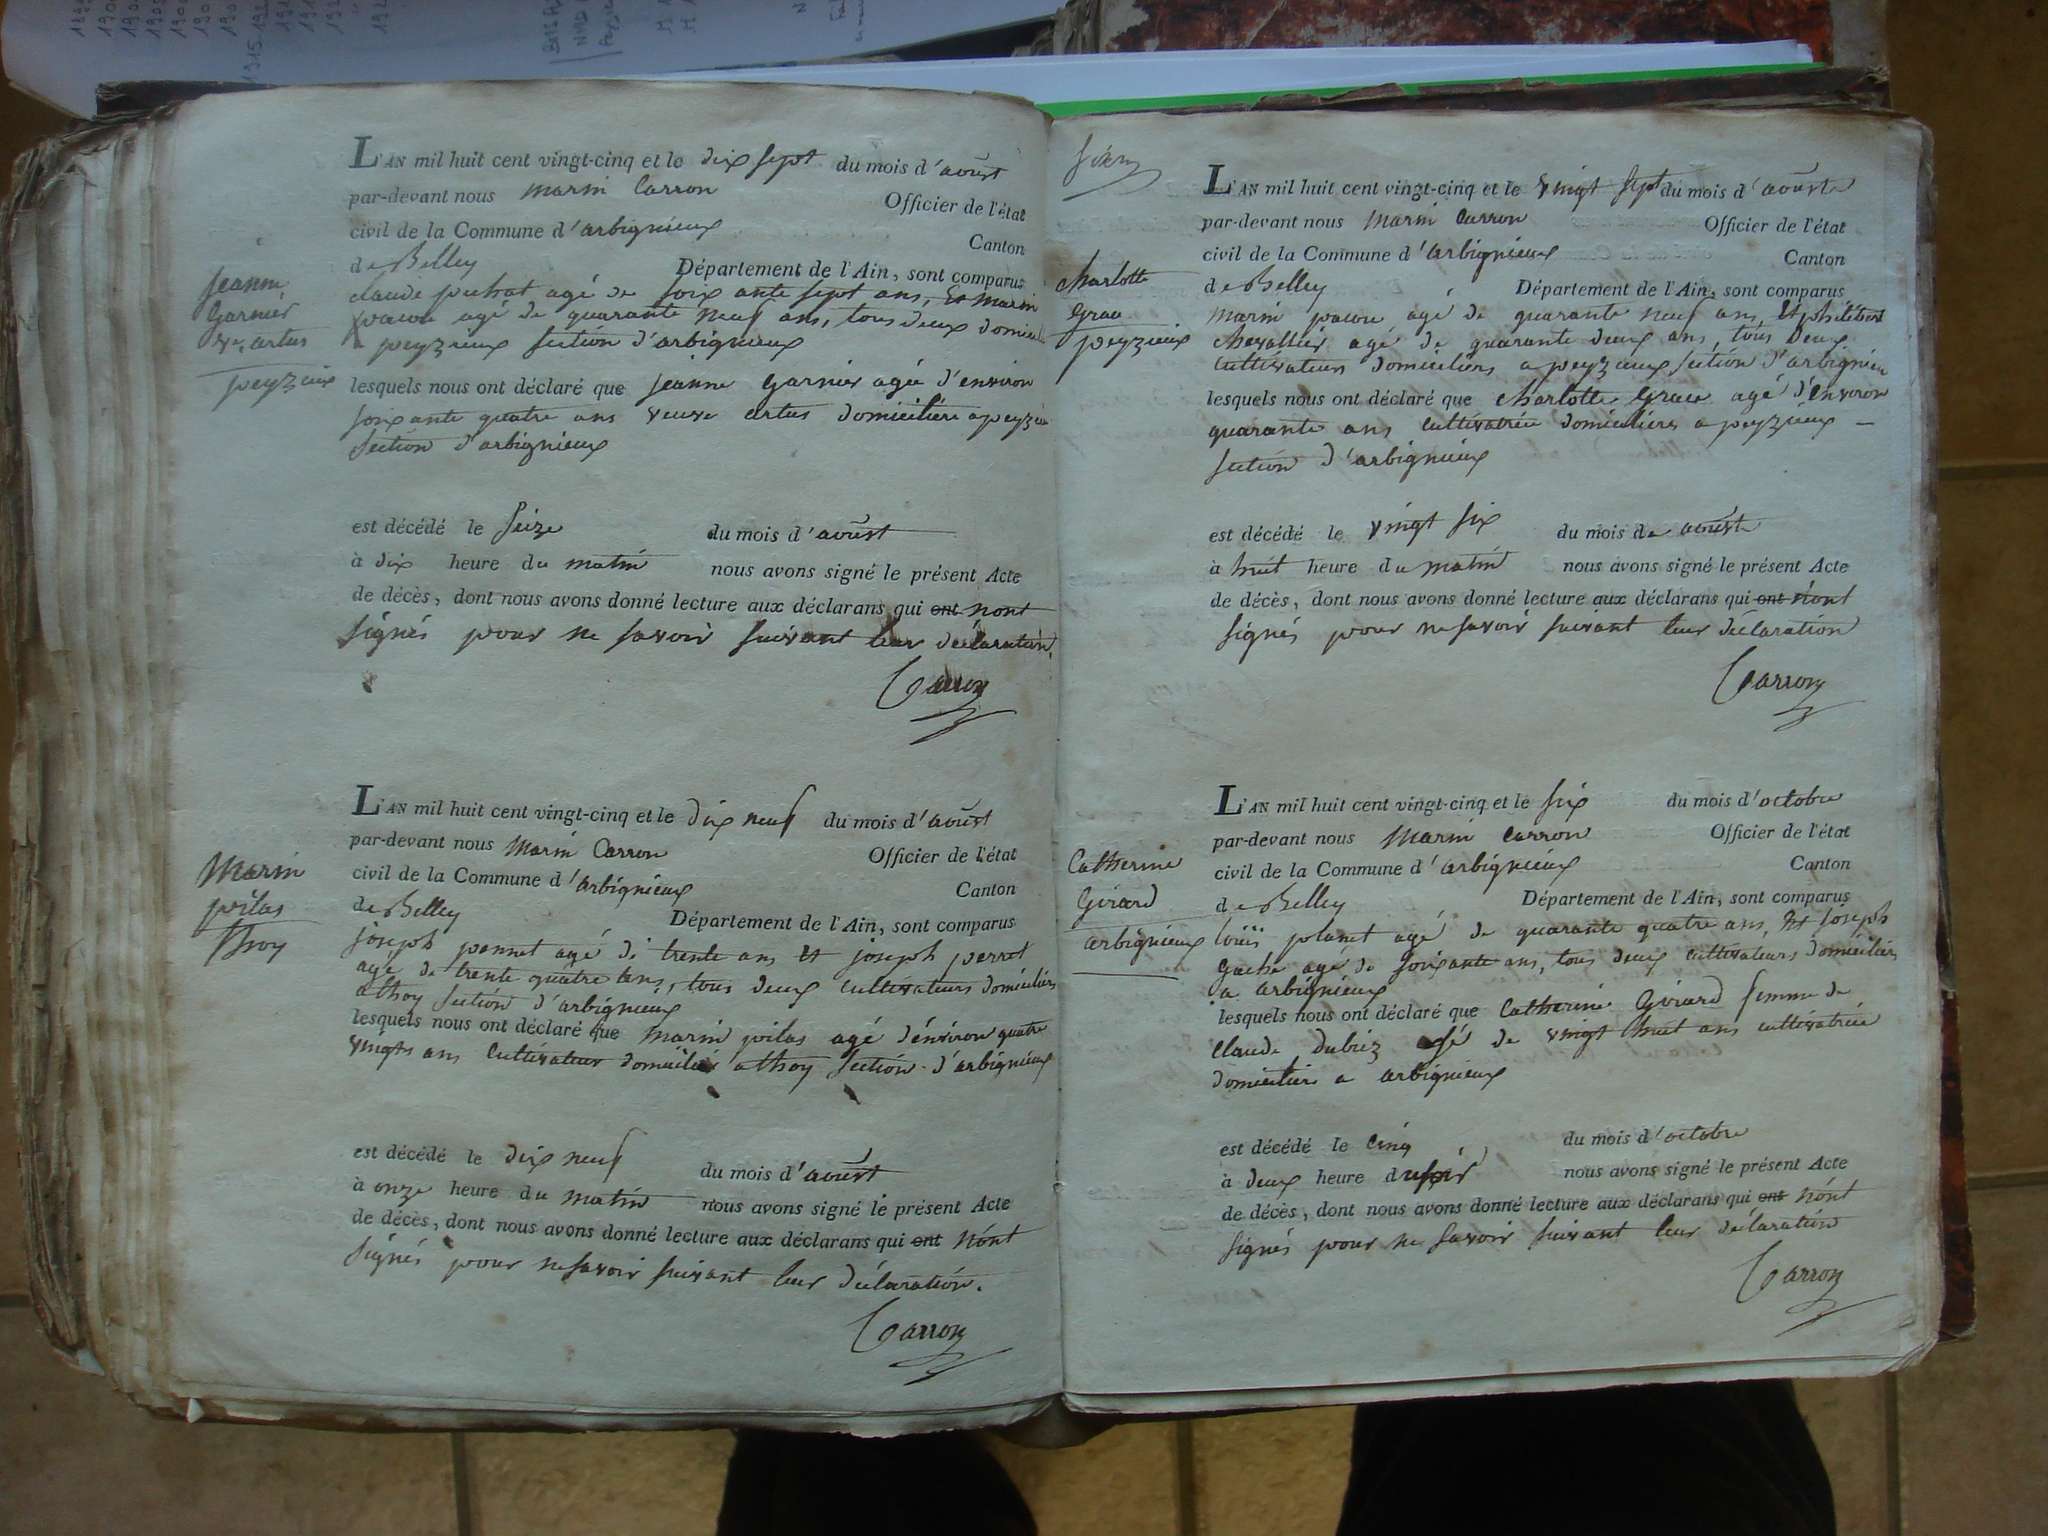 Jeanne
Garnier
ve. artus
peyzieux
L'AN mil huit cent vingt-cinq et le dix sept du mois d'aoust
par-devant nous marin Carron Officier de l'état
civil de la Commune d'arbignieux Canton
de Belley Département de l'Ain, sont comparus
claude puthat agé de soixante sept ans, et marin
pacou agé de quarante neuf ans, tous deux
a peyzieux section d'arbignieux
lesquels nous ont déclaré que jeanne garnier agée d'environ
soixante quatre ans veuve artus domiciliére a
section d'arbignieux
est décédé le seize du mois d'aoust
à dix heure du matin nous avons signé le présent Acte
de décès, dont nous avons donné lecture aux déclarans qui ont nont
signés pour ne savoir suivant leur déclaration.
Carron
Marin
pilas
thoy
L'AN mil huit cent vingt-cinq et le dix neuf du mois d'aoust
par-devant nous Marin Carron Officier de l'état
civil de la Commune d'arbignieux Canton
de Belley Département de l'Ain, sont comparus
joseph ponnet agé de trente ans et joseph perret
agé de trente quatre ans, tous deux cultivateurs domiciliés
a thoy section d'arbignieux
lesquels nous ont déclaré que marin pilas agé d'environ quatre
vingts ans cultivateur domicilié a thoy section d'arbignieux
est décédé le dix neuf du mois d'aoust
à onze heure du matin nous avons signé le présent Acte
de décès, dont nous avons donné lecture aux déclarans qui ont nont
signés pour ne savoir suivant leur déclaration.
Carron
charlotte
grau
peyzieux
L'AN mil huit cent vingt-cinq et le vingt sept du mois d'aouste
par-devant nous marin Carron Officier de l'état
civil de la Commune d'arbignieux Canton
de Belley Département de l'Ain, sont comparus
marin pacou agé de quarante neuf ans, et philibert
chevallier agé de quarante deux ans, tous deux
cultivateurs domiciliers a peyzieux section d'arbignieu
lesquels nous ont déclaré que charlotte agé d'environ
quarante ans cultivatrice domiciliére a peyzieux
section d'arbignieux
est décédé le vingt six du mois de aouste
à huit heure du matin nous avons signé le présent Acte
de décès, dont nous avons donné lecture aux déclarans qui ont nont
signés pour ne savoir suivant leur declaration
Carron
Catherine
Girard
arbignieux
L'AN mil huit cent vingt-cinq et le six du mois d'octobre
par-devant nous marin Carron Officier de l'état
civil de la Commune d'arbignieux Canton
de Belley Département de l'Ain, sont comparus
louis planet agé de quarante quatre ans, et joseph
gache agé de soixante ans, tous deux cultivateurs domiciliés
a arbignieux
lesquels nous ont déclaré que Catherine Girard femme de
claude dubiez agé de vingt huit ans cultivatrice
domiciliére a arbignieux
est décédé le cinq du mois d'octobre
à deux heure du soir nous avons signé le présent Acte
de décès, dont nous avons donné lecture aux déclarans qui ont nont
signés pour ne savoir suivant leur déclaration
Carron